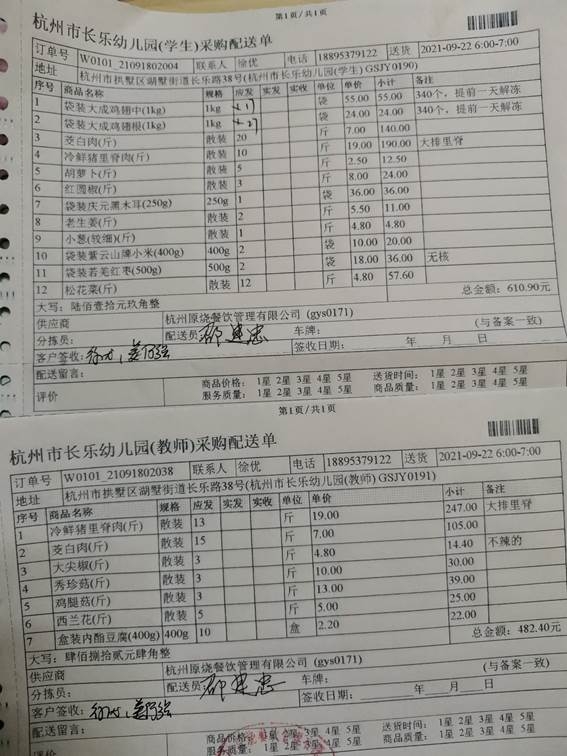 第1页/共1页
杭州市长乐幼儿园(学生)采购配送单
订单号 W0101_21091802004 联系人 徐优 电话 18895379120 送货 2021-09-22 6:00-7:00
地址 杭州市拱墅区湖墅街道长乐路38号(杭州市长乐幼儿园(学生) GSJY0190)
序号 商品名称 规格 应发 实发 实收 单位 单价 小计 备注
1 袋装大成鸡翅中(1kg) 1kg 袋 55.00 55.00 340个，提前一天解冻
2 袋装大成鸡翅根(1kg) 1kg 袋 24.00 24.00 340个，提前一天解冻
3 茭白肉(斤) 散装 20 斤 7.00 140.00
4 冷鲜猪里脊肉(斤) 散装 10 斤 19.00 190.00 大排里脊
5 胡萝卜(斤) 散装 5 斤 2.50 12.50
6 红圆椒(斤) 散装 3 斤 8.00 24.00
7 袋装庆元黑木耳(250g) 250g 1 袋 36.00 36.00
8 老生姜(斤) 散装 2 斤 5.50 11.00
9 小葱(较细)(斤) 散装 1 斤 4.80 4.80
10 袋装紫云山牌小米(400g) 400g 2 袋 10.00 20.00
11 袋装若羌红枣(500g) 500g 2 袋 18.00 36.00 无核
12 松花菜(斤) 散装 12 斤 4.80 57.60
大写：陆佰壹拾元玖角整 总金额：610.90元
供应商 杭州原烧餐饮管理有限公司 (gys0171) (与备案一致)
分拣员： 配送员 车牌：
客户签收： 签收日期： 年 月 日
配送留言：
评价 商品价格： 1星 2星 3星 4星 5星 送货时间： 1星 2星 3星 4星 5星
服务质量： 1星 2星 3星 4星 5星 商品质量： 1星 2星 3星 4星 5星
第1页/共1页
杭州市长乐幼儿园(教师)采购配送单
订单号 W0101_21091802038 联系人 徐优 电话 18895379132 送货 2021-09-22 6:00-7:00
地址 杭州市拱墅区湖墅街道长乐路38号(杭州市长乐幼儿园(教师) GSJY0191)
序号 商品名称 规格 应发 实发 实收 单位 单价 小计 备注
1 冷鲜猪里脊肉(斤) 散装 13 斤 19.00 247.00 大排里脊
2 茭白肉(斤) 散装 15 斤 7.00 105.00
3 大尖椒(斤) 散装 3 斤 4.80 14.40 不辣的
4 秀珍菇(斤) 散装 3 斤 10.00 30.00
5 鸡腿菇(斤) 散装 3 斤 13.00 39.00
6 西兰花(斤) 散装 5 斤 5.00 25.00
7 盒装内酯豆腐(400g) 400g 10 盒 2.20 22.00
大写：肆佰捌拾贰元肆角整 总金额：482.40元
供应商 杭州原烧餐饮管理有限公司 (gys0171) (与备案一致)
分拣员： 配送员 车牌：
客户签收： 签收日期： 年 月 日
配送留言：
商品价格： 1星 2星 3星 4星 5星 送货时间： 1星 2星 3星 4星 5星
服务质量： 1星 2星 3星 4星 5星 商品质量： 1星 2星 3星 4星 5星